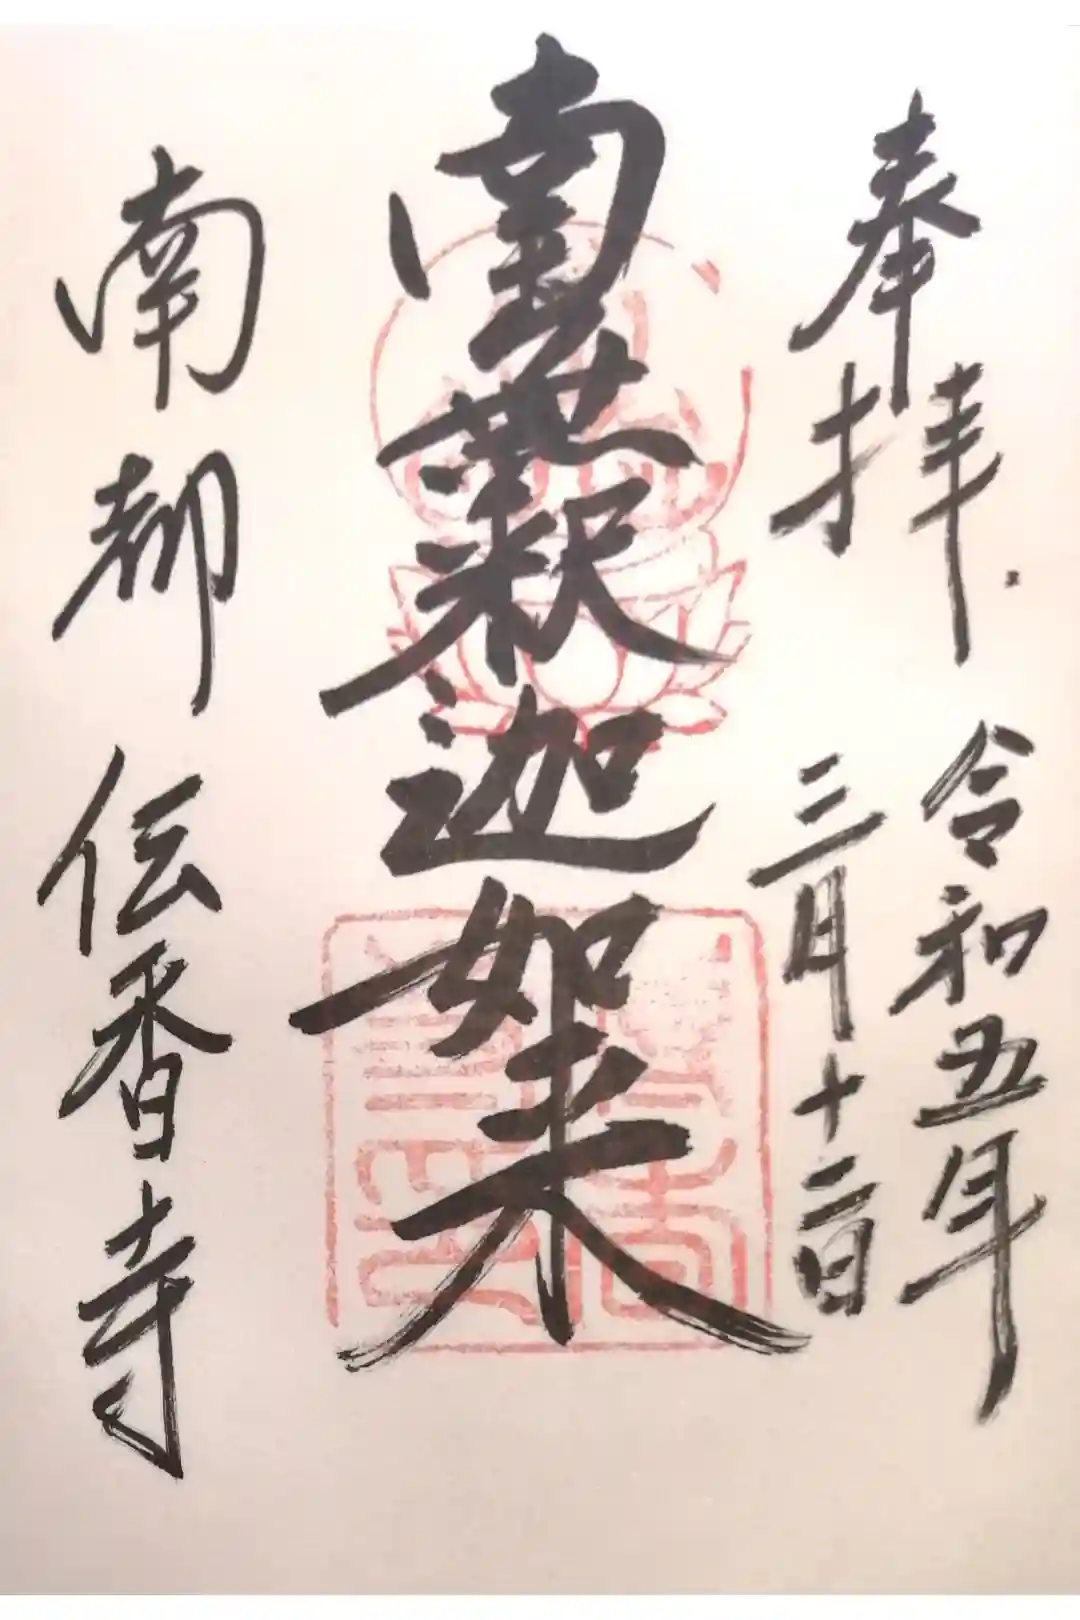 奉拝
令和五年
三月十二日
南無釈迦如来
南都 伝香寺